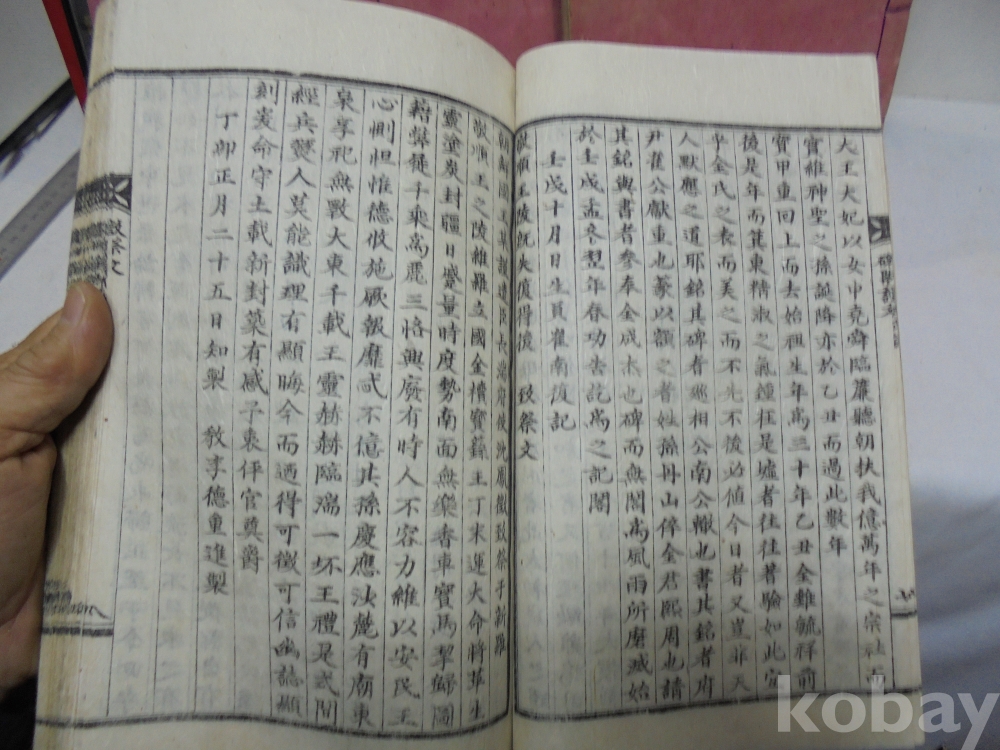 大王大妃以女中堯舜臨簾聽朝扶我億萬年之宗社而
實維神聖之孫誕降亦於乙丑而過此數年
寶甲重回上而去始祖生年為三十年乙丑金雞毓祥前
後是年而箕東精淑之氣鍾在是墟者往往著驗如此宜
乎金氏之表而美之而不先不後必值今日者又豈非天
人默應之道耶銘其碑者廵相公南公轍也書其銘者府
尹崔公獻重也篆以額之者姓孫丹山倅金君熙周也請
其銘與書者叅奉金成杰也碑而無閣為風雨所磨滅始
於壬戌孟冬翌年春功告訖為之記閣
壬戌十月日生員崔南復記
敬順王陵旣失復得後 致祭文
敬順王之陵維羅立國金櫝寶籙王丁末運大命將革生
靈塗炭封疆日蹙量時度勢南面無樂香車寶馬挈歸圖
籍葬徒千乘高麗三恪興廢有時人不容力維以安民王
心惻怛惟德攸施厥報靡忒不億其孫慶應沙麓有廟東
泉享祀無斁大東千載王靈赫赫臨湍一坏王禮是式間
經兵燹人莫能識理有顯晦今而迺得可徵可信幽誌顯
刻爰命守土載新封築有感予衷伻官奠爵
丁卯正月二十五日知製 敎李德重進製
致祭文
kobay